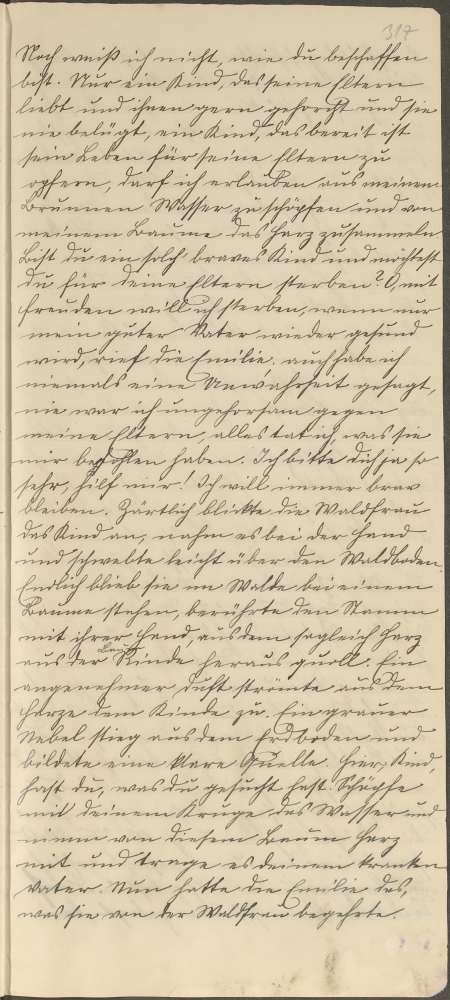 317
Noch weiß ich nicht, wie du beschaffen
bist. Nur ein Kind, das seine Eltern
liebt und ihnen gern gehorcht und sie
nie belügt, ein Kind, das bereit ist
sein Leben für seine Eltern zu
opfern, darf ich erlauben aus meinem
Brunnen Wasser zu schöpfen und von
meinem Baume das Harz zusammeln
Bist du ein solch' braves Kind und möchtest
du für deine Eltern sterben? O, mit
Freuden will ich sterben, wenn nur
mein guter Vater wieder gesund
wird, rief die Emilie, auch habe ich
niemals eine Unwahrheit gesagt,
nie war ich ungehorsam gegen
meine Eltern, alles tat ich, was sie
mir befohlen haben. Ich bitte dich ja so
sehr, hilf mir! Ich will immer brav
bleiben. Zärtlich blickte die Waldfrau
das Kind an, nahm es bei der Hand
und schwebte leicht über den Waldboden.
Endlich blieb sie im Walde bei einem
Baume stehen, berührte den Stamm
mit ihrer Hand, aus dem sogleich Harz
aus der Rinde heraus quoll. Ein
angenehmer Duft strömte aus dem
Harze dem Kinde zu. Ein grauer
Nebel stieg aus dem Erdboden und
bildete eine klare Quelle. Hier, Kind,
hast du, was du gesucht hast. Schöpfe
mit deinem Kruge das Wasser und
nimm von diesem Baum Harz
mit und trage es deinem kranken
Vater. Nun hatte die Emilie das,
was sie von der Waldfrau begehrte.